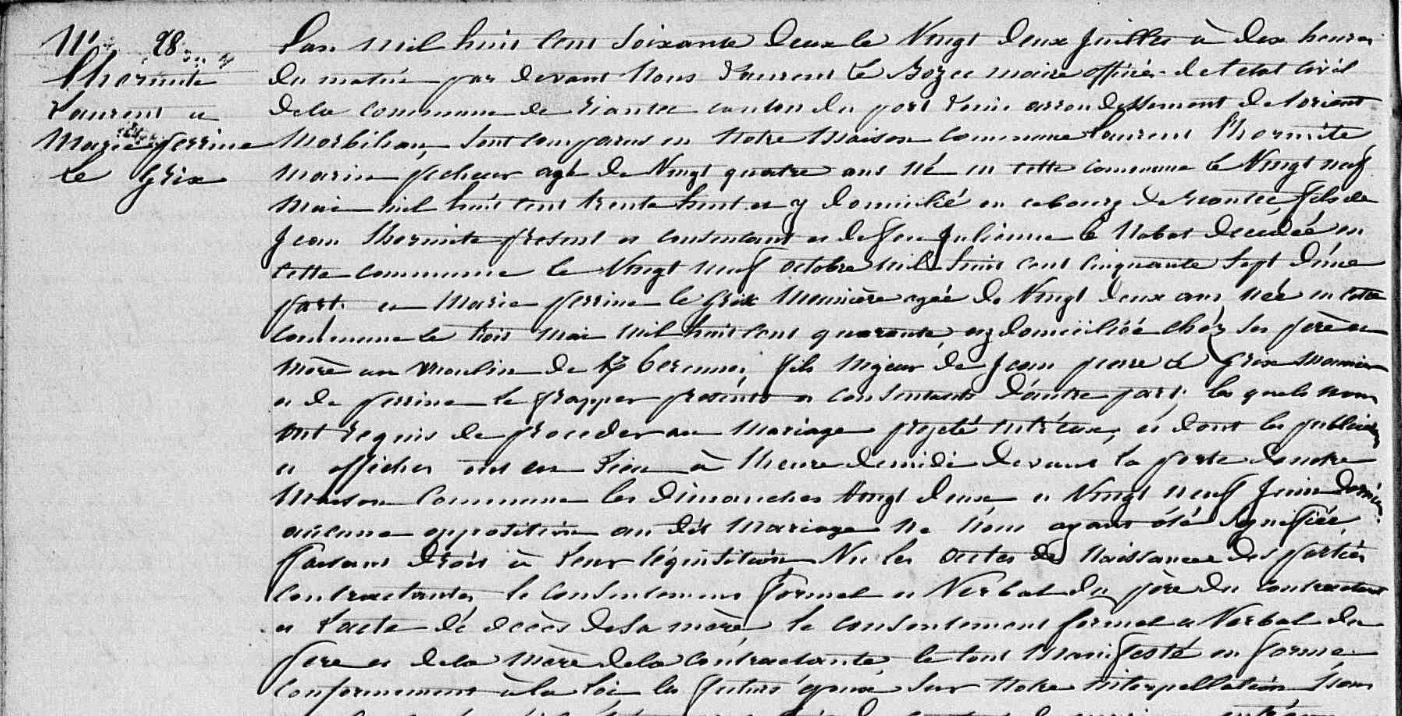 N° 28
Lhermite
Laurent et
Marie perrine
Le Grix
L'an mil huit cent soixante deux le Vingt deux juillet à dix heures
du matin par devant Nous Laurent Le Bozec maire officier de l'etat civil
de la commune de riantec canton du port Louis arrondissement de Lorient
Morbihan, sont comparus en Notre Maison Commune Laurent Lhermite
Marin pecheur agé de Vingt quatre ans Né en cette commune le Vingt neuf
Mai mil huit cent trente huit et y domicilié en ce bourg de riantec fils de
Jean Lhermite présent et consentant et de feu Julienne le Nabat décédée en
cette commune le Vingt neuf octobre mil huit cent cinquante Sept d'une
part et Marie perrine le Grix Meunière agée de Vingt deux ans née en cette
Commune le trois Mai mil huit cent quarante et y domiciliée chez ses père et
Mère au Moulin de fils Majeur de Jean pierre Le Grix Meunier
et de perrine Le frapper présents et consentants d'autre part les quels nous
ont requis de proceder au Mariage projeté entr'eux, et dont les publications
et affiches ont eu Lieu à l'heure de midi devant la porte de notre
Maison Commune les dimanches Vingt deux et Vingt neuf Juin dernier
aucune opposition au dit Mariage ne Nous ayant été Signifiée
faisant droit à Leur réquisition Vu les actes de Naissance des parties
Contractantes le Consentement formel et Verbal du père du contractant
et L'acte de décès de sa mère le consentement formel et Verbal du
père et de la Mère de la Contractante, le tout Manifesté en forme
Conformement à la Loi les futurs époux Sur Notre interpellation Nous